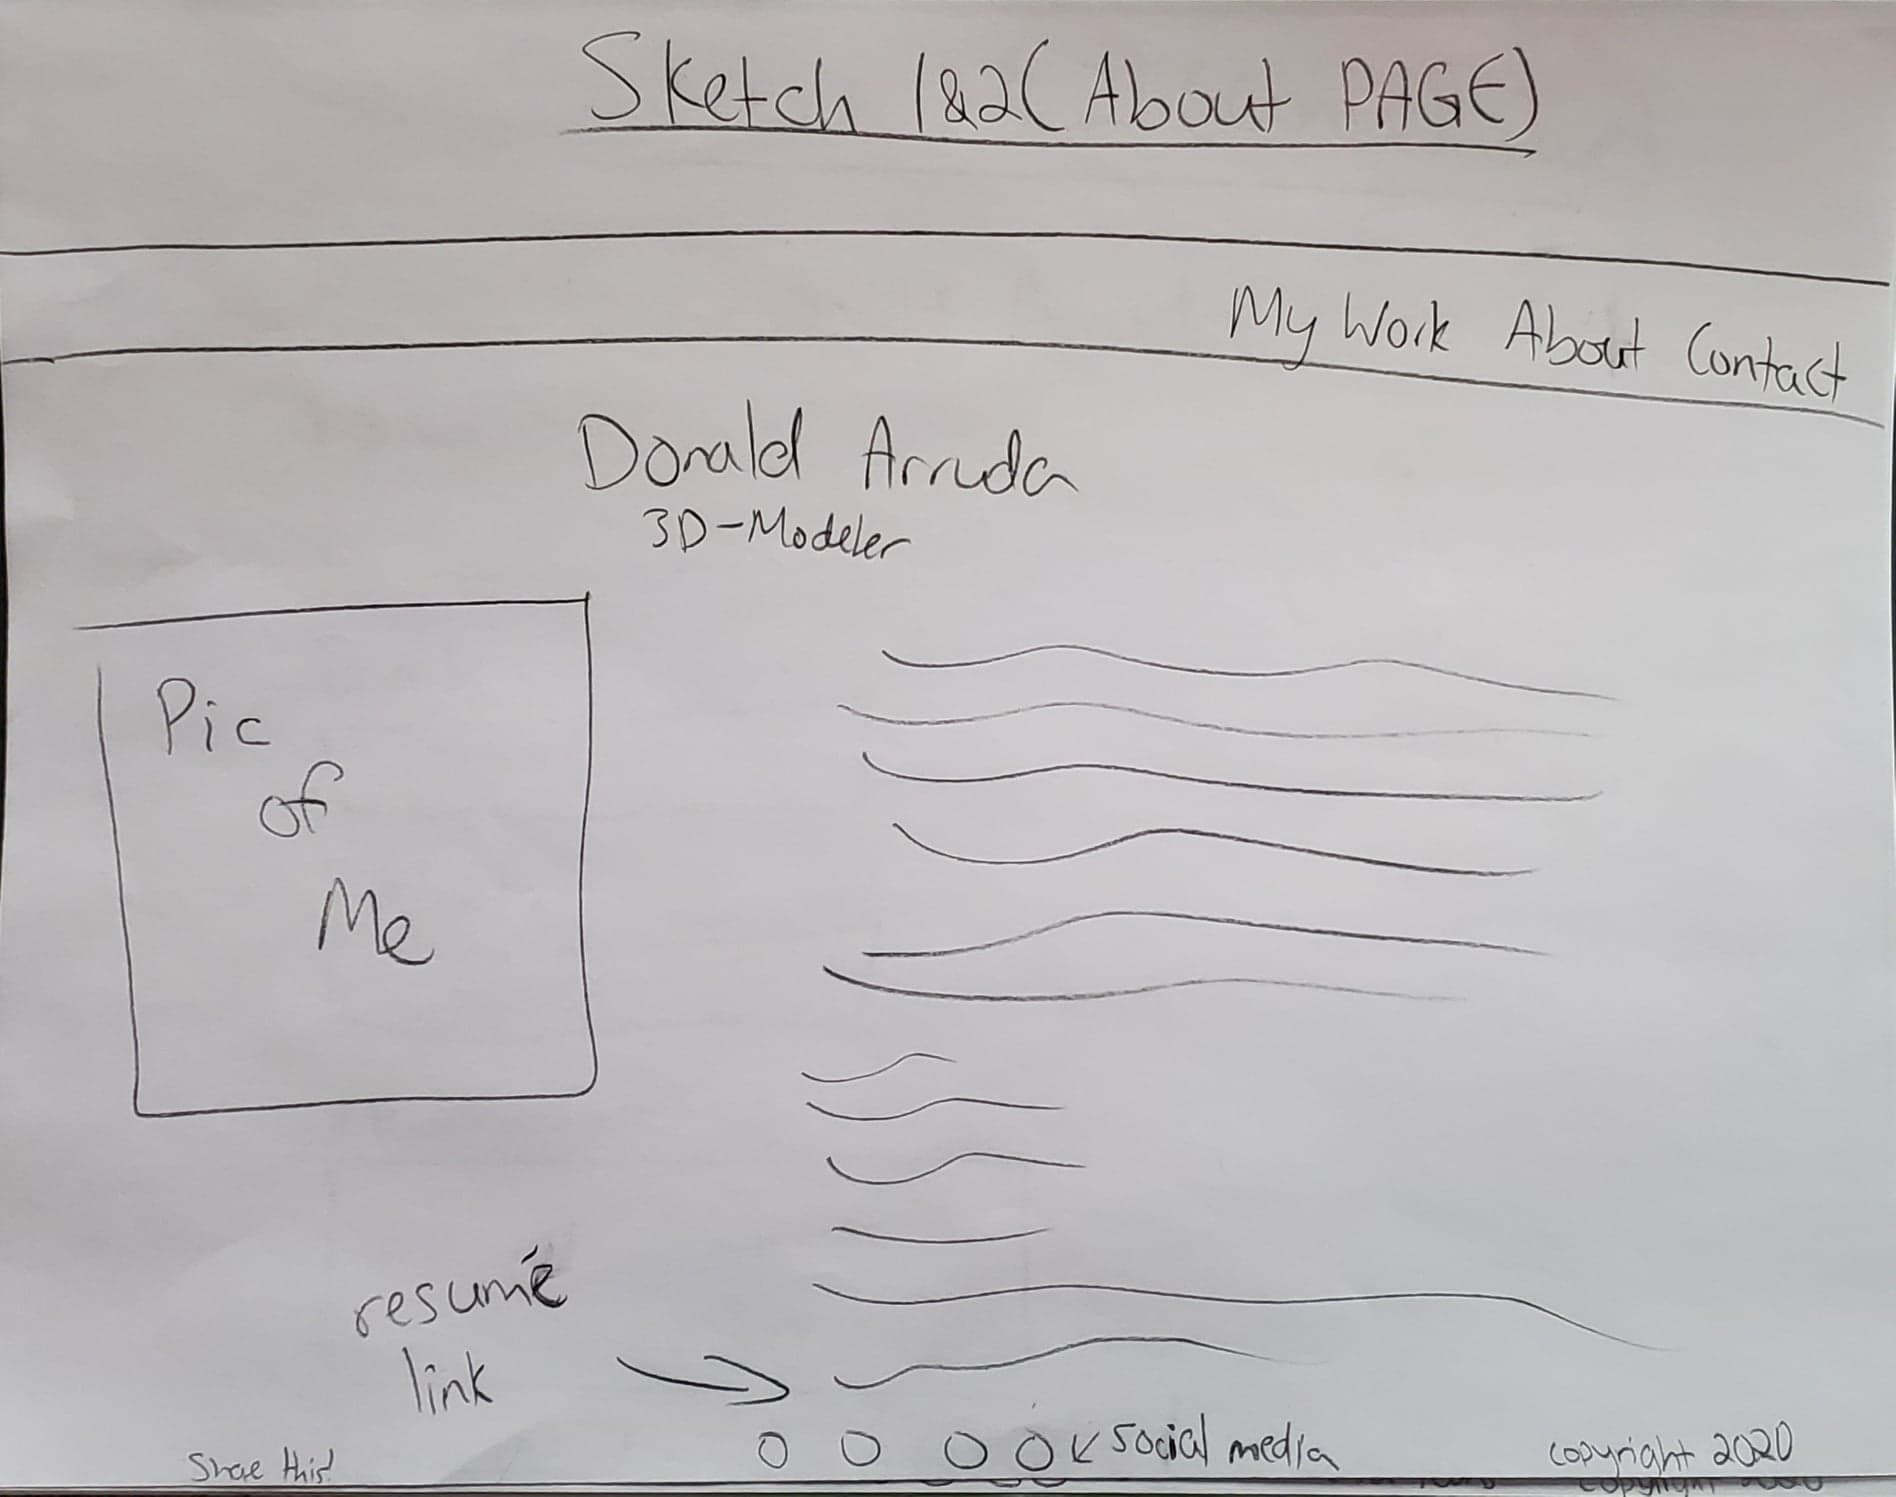 Sketch 1&2 (About PAGE)
My Work About Contact
Donald Arruda
3D-Modeler
Pic
of
Me
resumé
link
Share this!
social media
copyright 2020
copyright 2020